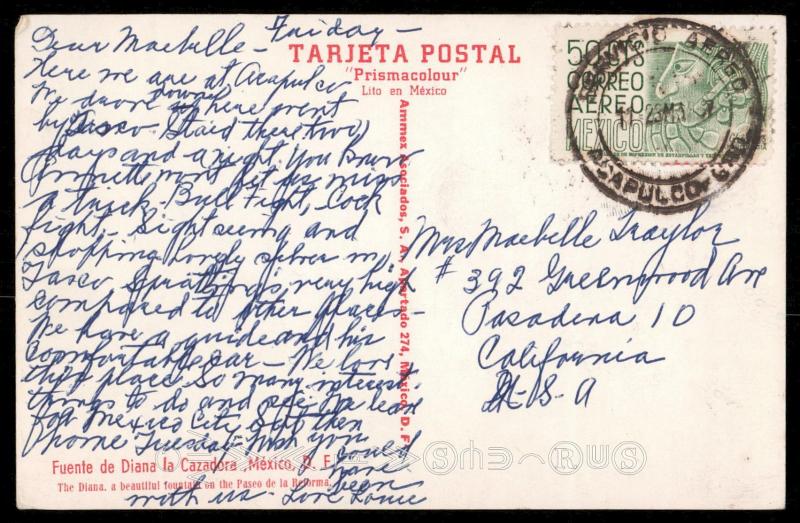 Dear Maebelle - Friday -
Here we are at Acapulco
We drove down here went
by Tasco Staid there two
days and a night. You know
won't let me miss
a trick - Bull Fight, Cock
fight, Sightseeing and
shopping lovely silver in
Tasco. Everything's very high
compared to other places -
We have a guide and his
comfortable car - We love
this place So many interest
things to do and see. We leave
for Mexico City Sat then
home Tuesda- Wish you
could
have
been
with us - Love
TARJETA POSTAL
"Prismacolour"
Lito en México
Ammex Asociados, S. A., Apartado 274, México, D. F.
50 CTS
CORREO
AEREO
MEXICO
SERVICIO AEREO
ACAPULCO, GRO.
Mrs Maebelle Traylor
# 392 Greenwood Ave
Pasadena 10
California
U-S-A
Fuente de Diana la Cazadora, México, D. F.
The Diana, a beautiful fountain on the Paseo de la Reforma.